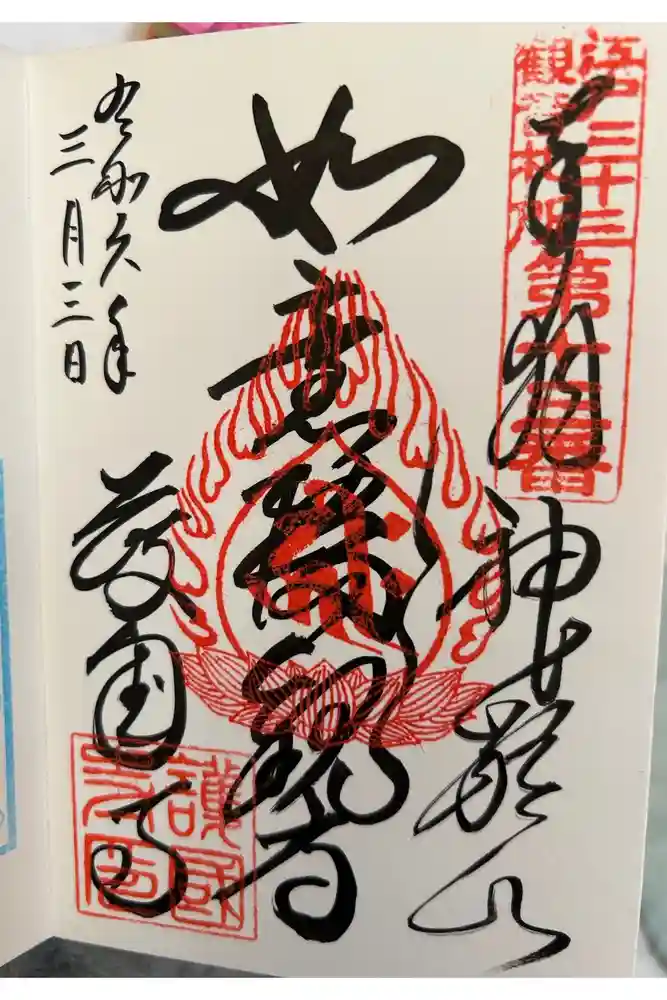 奉拝
神齢山
如意輪観音
護国寺
令和六年
三月三日
江戸三十三
観音札所
第十三番
護國
寺印